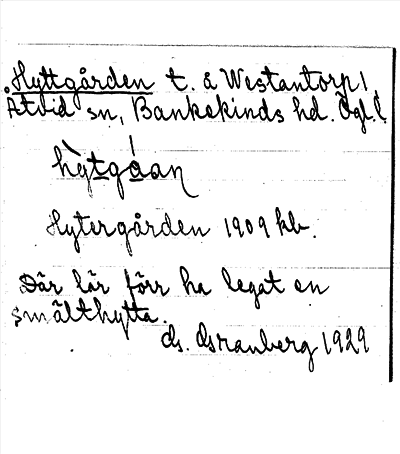 Hyttgården t. å Westantorp 1,
Åtvid sn, Bankekinds hd. Ögl.
hỳtgáan
Hytergården 1909 kb.
Där lär förr ha legat en
smälthytta.
1929